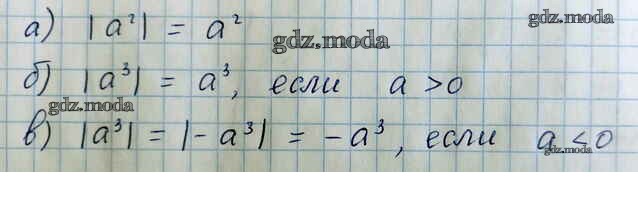 gdz.moda
а) |a²| = a²
gdz.moda
б) |a³| = a³, если a > 0
gdz.moda
в) |a³| = |-a³| = -a³, если a < 0
gdz.moda